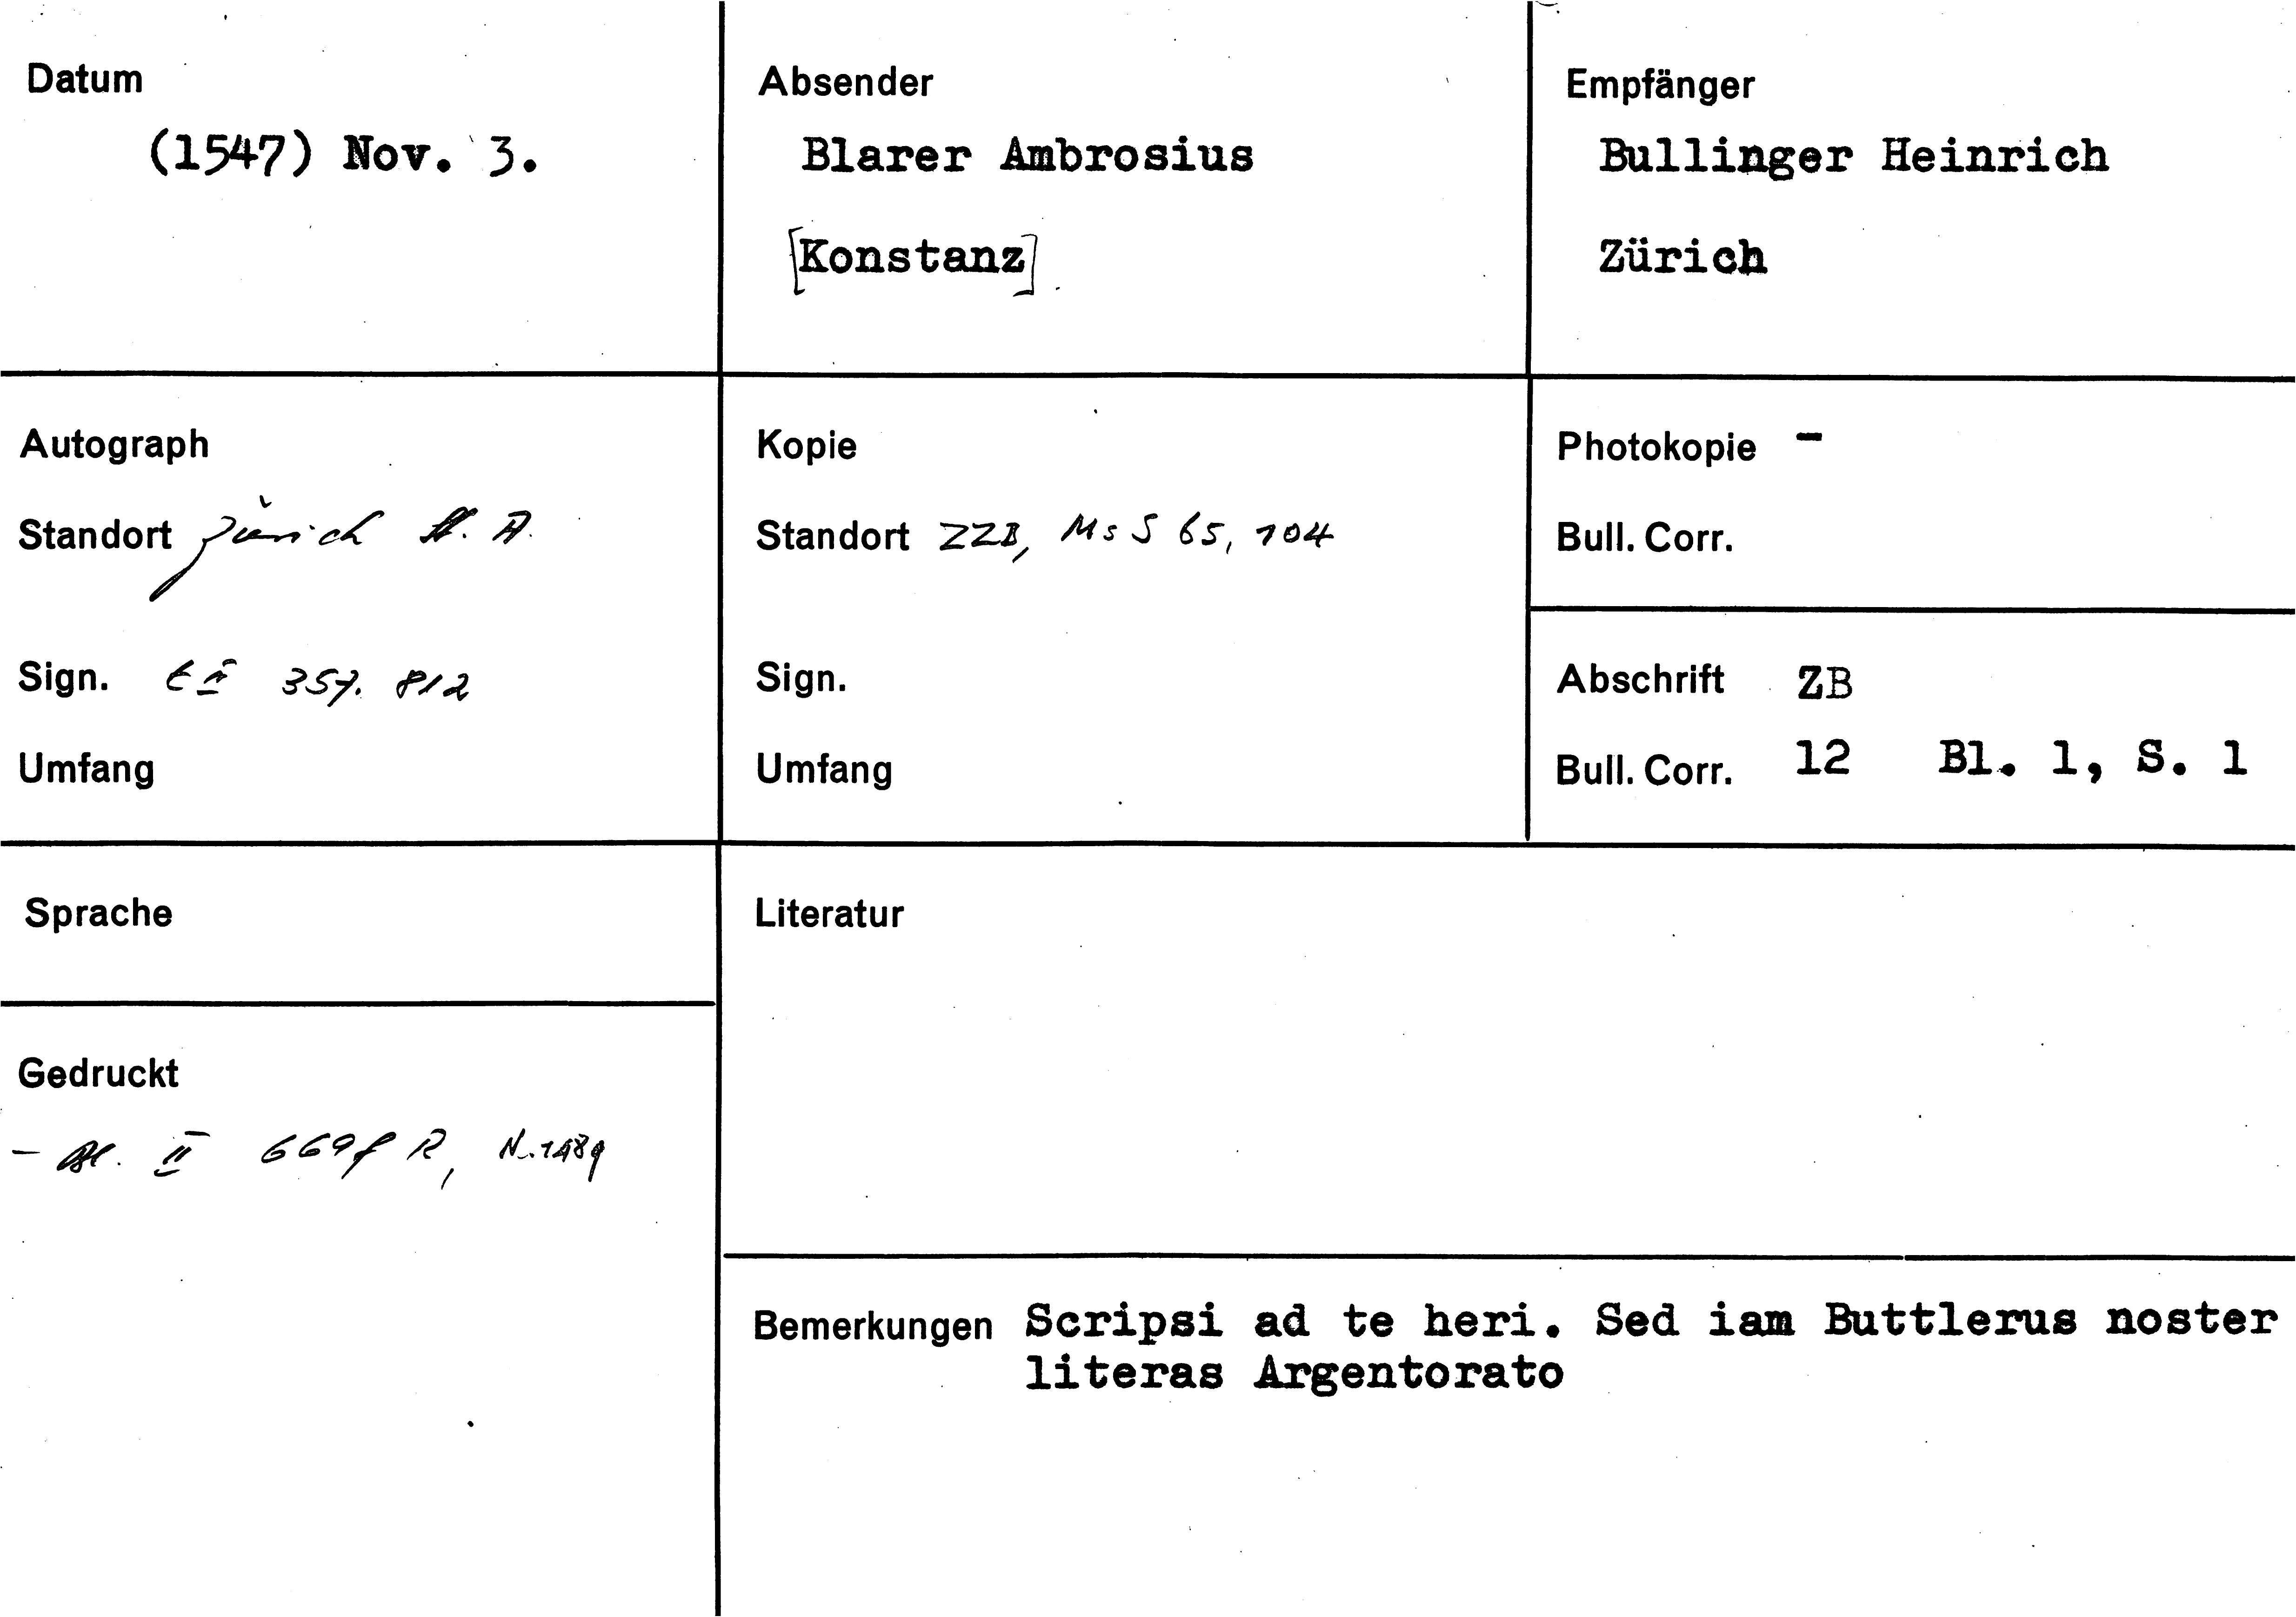 Datum
(1547) Nov. 3.
Absender
Blarer Ambrosius
[Konstanz]
Empfänger
Bullinger Heinrich
Zürich
Autograph
Standort Zürich St. A.
Sign. E II 357. 812
Umfang
Kopie
Standort ZZB, Ms S 65, 104
Sign.
Umfang
Photokopie -
Bull. Corr.
Abschrift ZB
Bull. Corr. 12 Bl. 1, S. 1
Sprache
Gedruckt
- Bl. II 669f R, N. 1489
Literatur
Bemerkungen Scripsi ad te heri. Sed iam Buttlerus noster
literas Argentorato